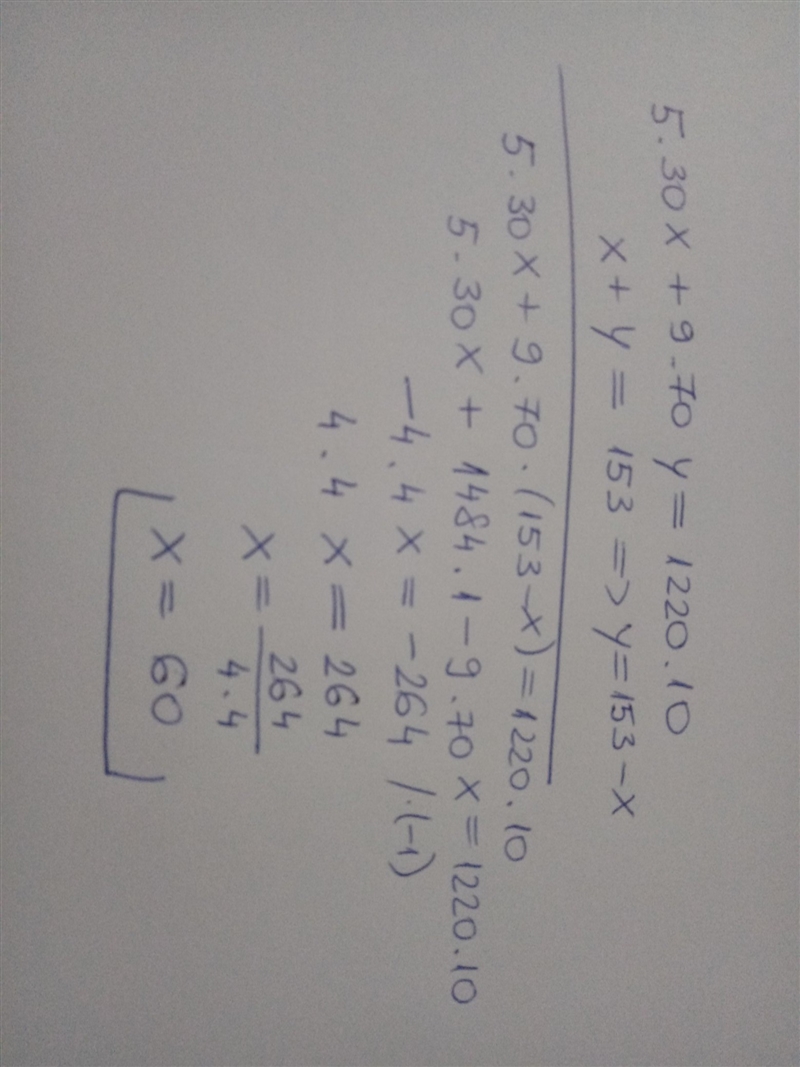 5.30x + 9.70y = 1220.10
x + y = 153 => y = 153 - x
5.30x + 9.70 · (153 - x) = 1220.10
5.30x + 1484.1 - 9.70x = 1220.10
-4.4x = -264 / ·(-1)
4.4x = 264
x = 264/4.4
x = 60